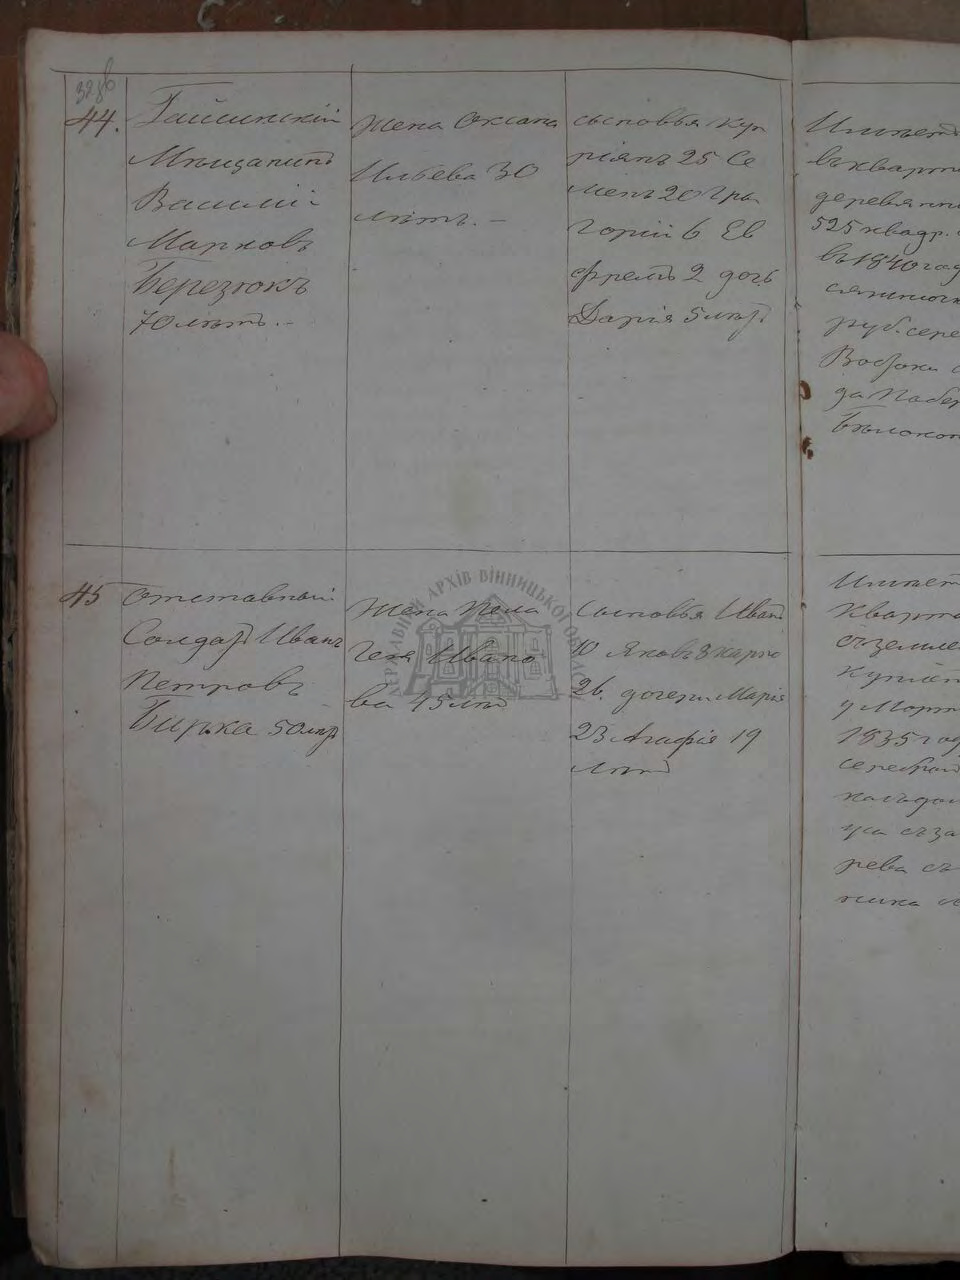 44.
Гайсинскій
Мѣщанинъ
Василій
Марковъ
Березюкъ
70 лѣтъ. –
жена Оксана
Ильева 30
лѣтъ. –
сыновья Куп
ріянъ 25 Се
менъ 20 Гри
горій 6 Ев
фремъ 2 дочь
Дарія 5 лѣт
Имѣетъ
въ кварта
деревянны
525 квадр.
въ 1840 год
руб. сере
45
отставный
Солдатъ Иванъ
Петровъ
Бирка 50 лѣт
жена Пела
гея Ивано
ва 45 лѣт
Сыновья Иванъ
Яковъ
26. дочери Марія
23 Агафія 19
лѣтъ
Имѣет
кварта
съ землею
у Март
1835 год
серебром
рева съ
ДЕРЖАВНИЙ АРХІВ ВІННИЦЬКОЇ ОБЛАСТІ